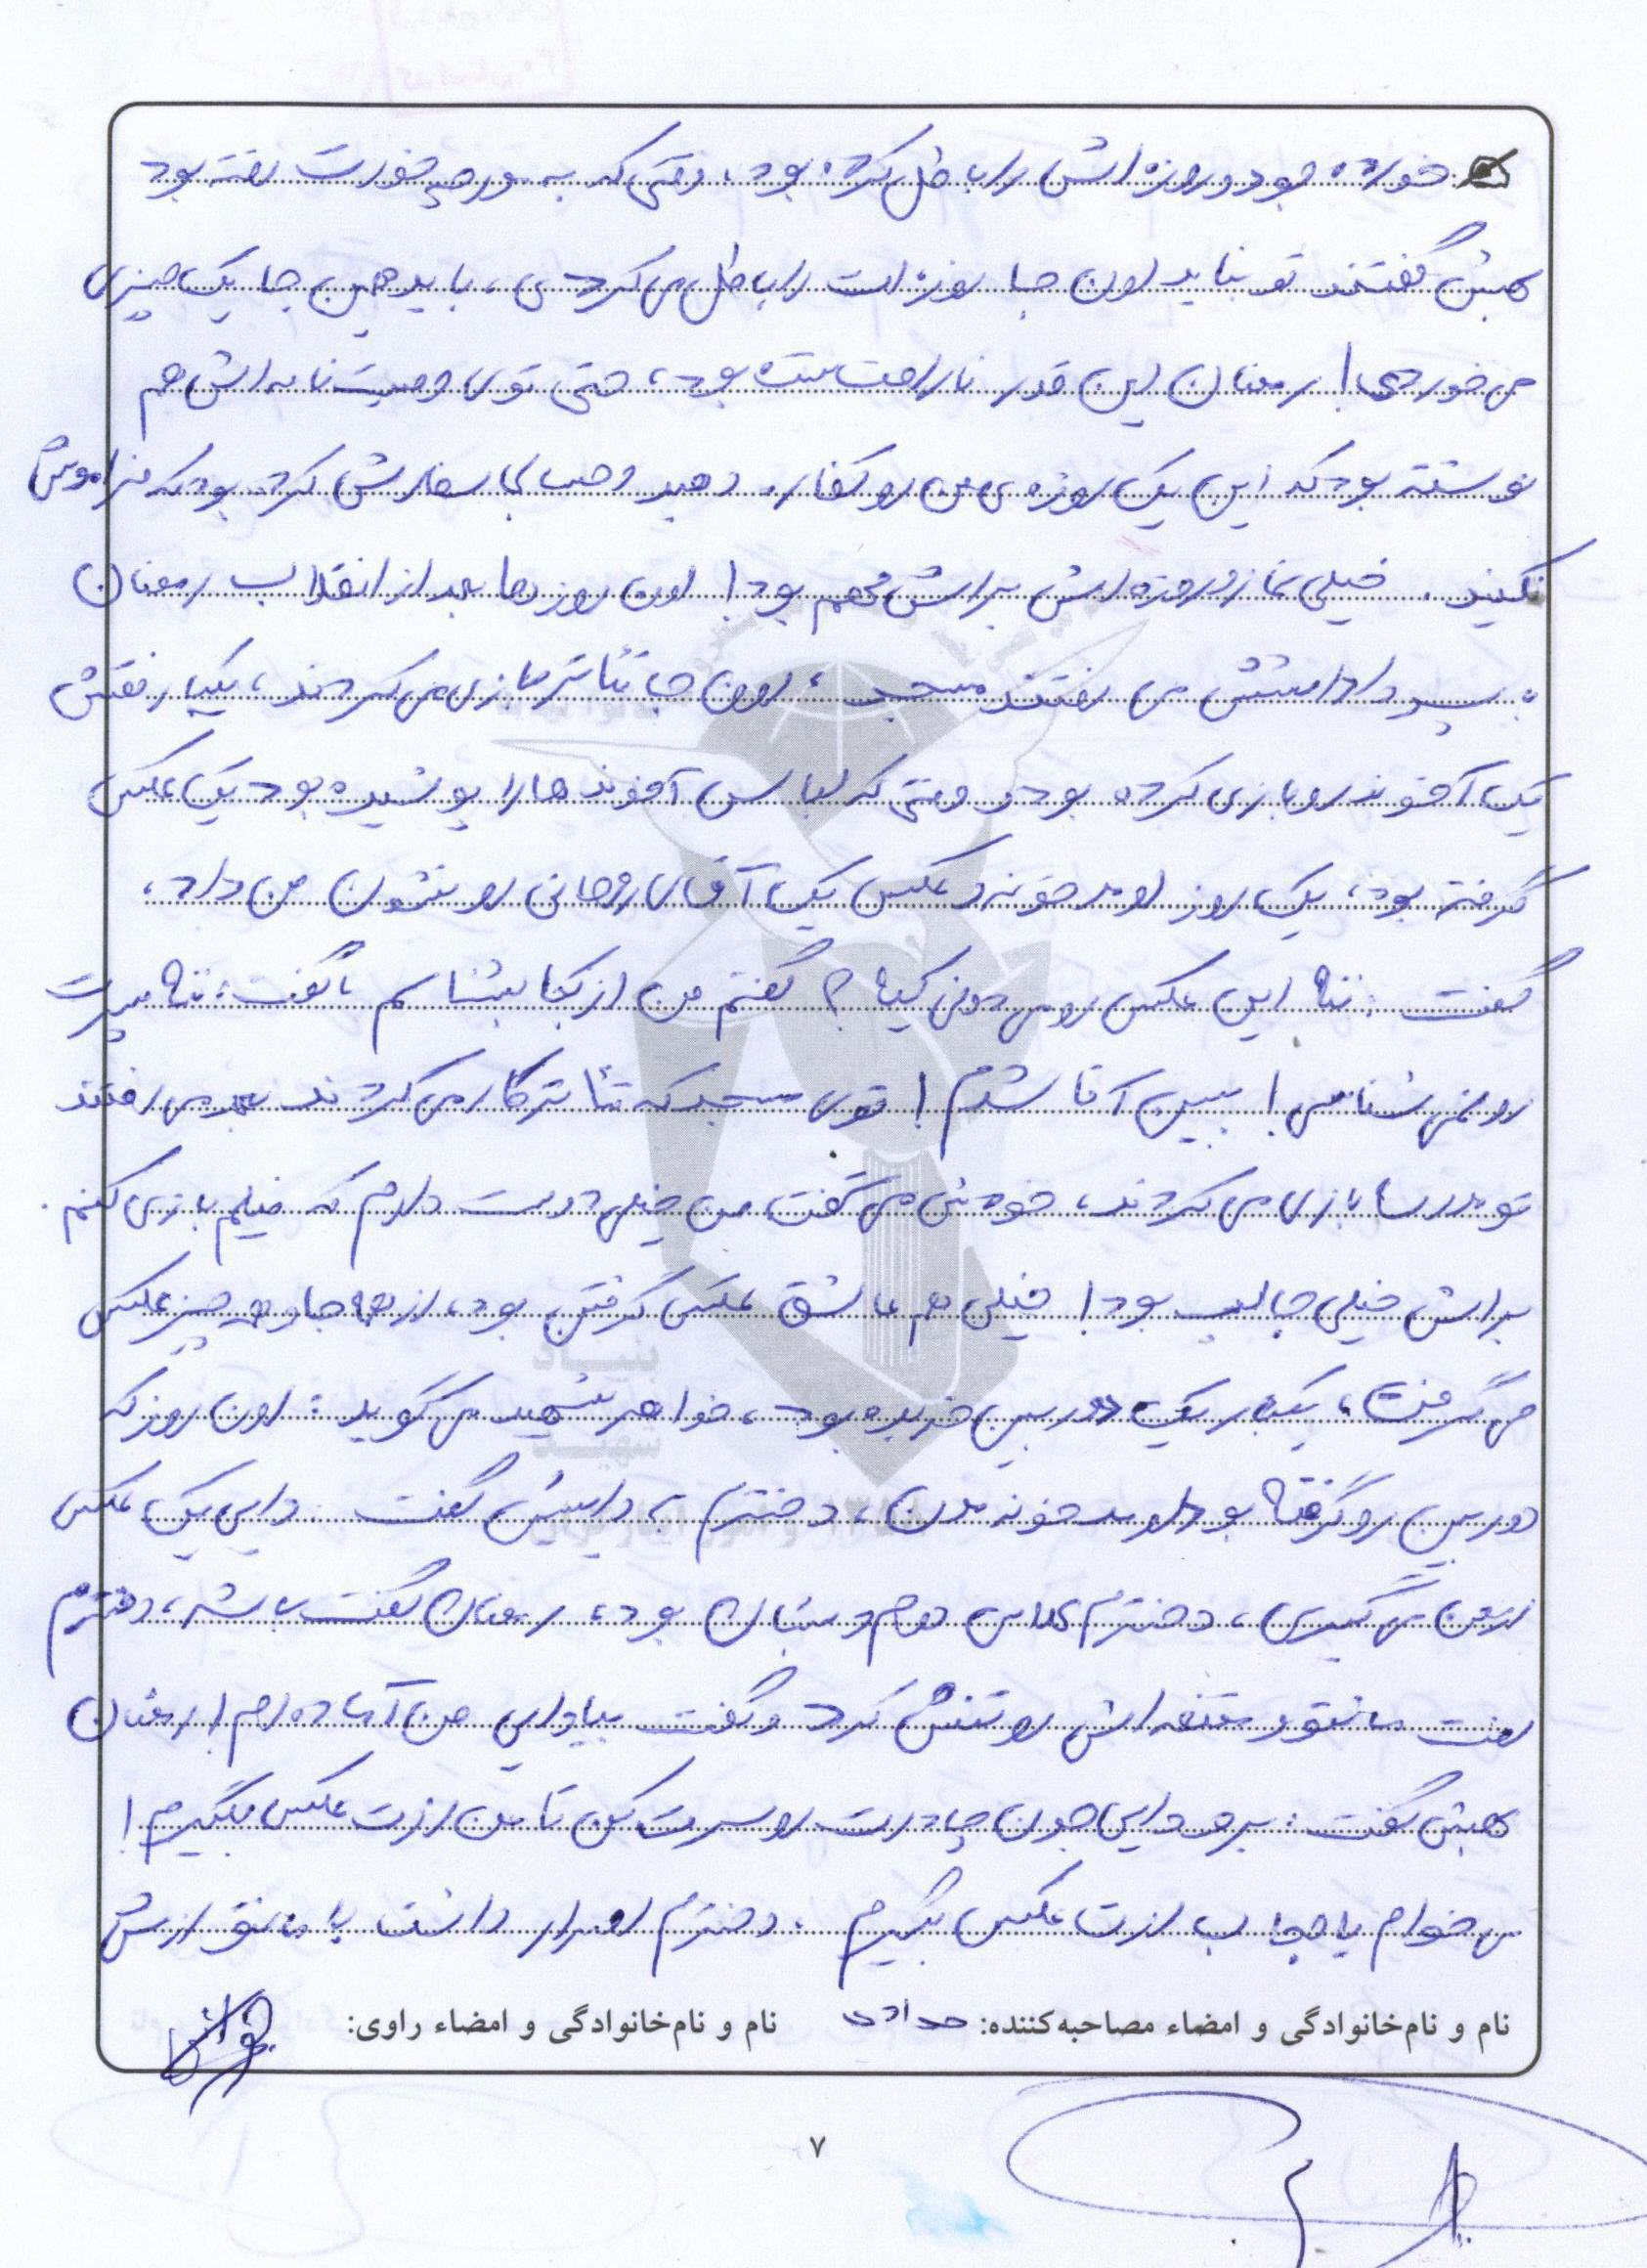 خورده بود و روزه اش را باطل کرده بود، وقتی که به ... رفته بود
بهش گفتند تو نباید اون جا روزه ات را باطل می کردی، باید همین جا یک چیزی
می خوردی! رمضان این قدر ناراحت شده بود، حتی توی وصیت نامه اش هم
نوشته بود که این یک روزه ی من رو کفاره دهید و حسابی سفارش کرده بود که فراموش
نکنید. خیلی نماز و روزه اش براش مهم بود! اون روزها بعد از انقلاب رمضان
با پسر دادا مشتش می رفتند مسجد، اون جا تئاتر بازی می کردند، یکبار نقش
یک آخوند رو بازی کرده بود و وقتی که لباس آخوندها را پوشیده بود یک عکس
گرفته بود، یک روز اومد خونه و عکس یک آقای روحانی رو نشون من داد،
گفت: ننه این عکس رو می دونی کیه؟ گفتم من از کجا بشناسم، گفت: ننه پسرت
رو نمی شناسی! ببین آقا شدم! توی مسجد که تئاتر کار می کردند بعد می رفتند
تو مدرسا بازی می کردند، خودش می گفت من خیلی دوست دارم که فیلم بازی کنم.
براش خیلی جالب بود! خیلی هم عاشق عکس گرفتن بود، از همه جا و همه چیز عکس
می گرفت، یکبار یک دوربین خریده بود، خواهر شهید می گوید: اون روز که
دوربین رو گرفته بود اومد خونه مون، دخترم به داییش گفت. دایی یک عکس
از من می گیری، دخترم کلاس دوم دبستان بود، رمضان گفت باشه، دخترم
رفت مانتو و مقنعه اش رو تنش کرد و گفت بیا دایی من آماده ام! رمضان
بهش گفت: برو دایی جون چادرت رو سرت کن تا من ازت عکس بگیرم!
می خوام با حجاب ازت عکس بگیرم، دخترم اصرار داشت با مانتو ازش
نام و نام‌خانوادگی و امضاء مصاحبه‌کننده: نام و نام‌خانوادگی و امضاء راوی:
۷
بنیاد
شهید